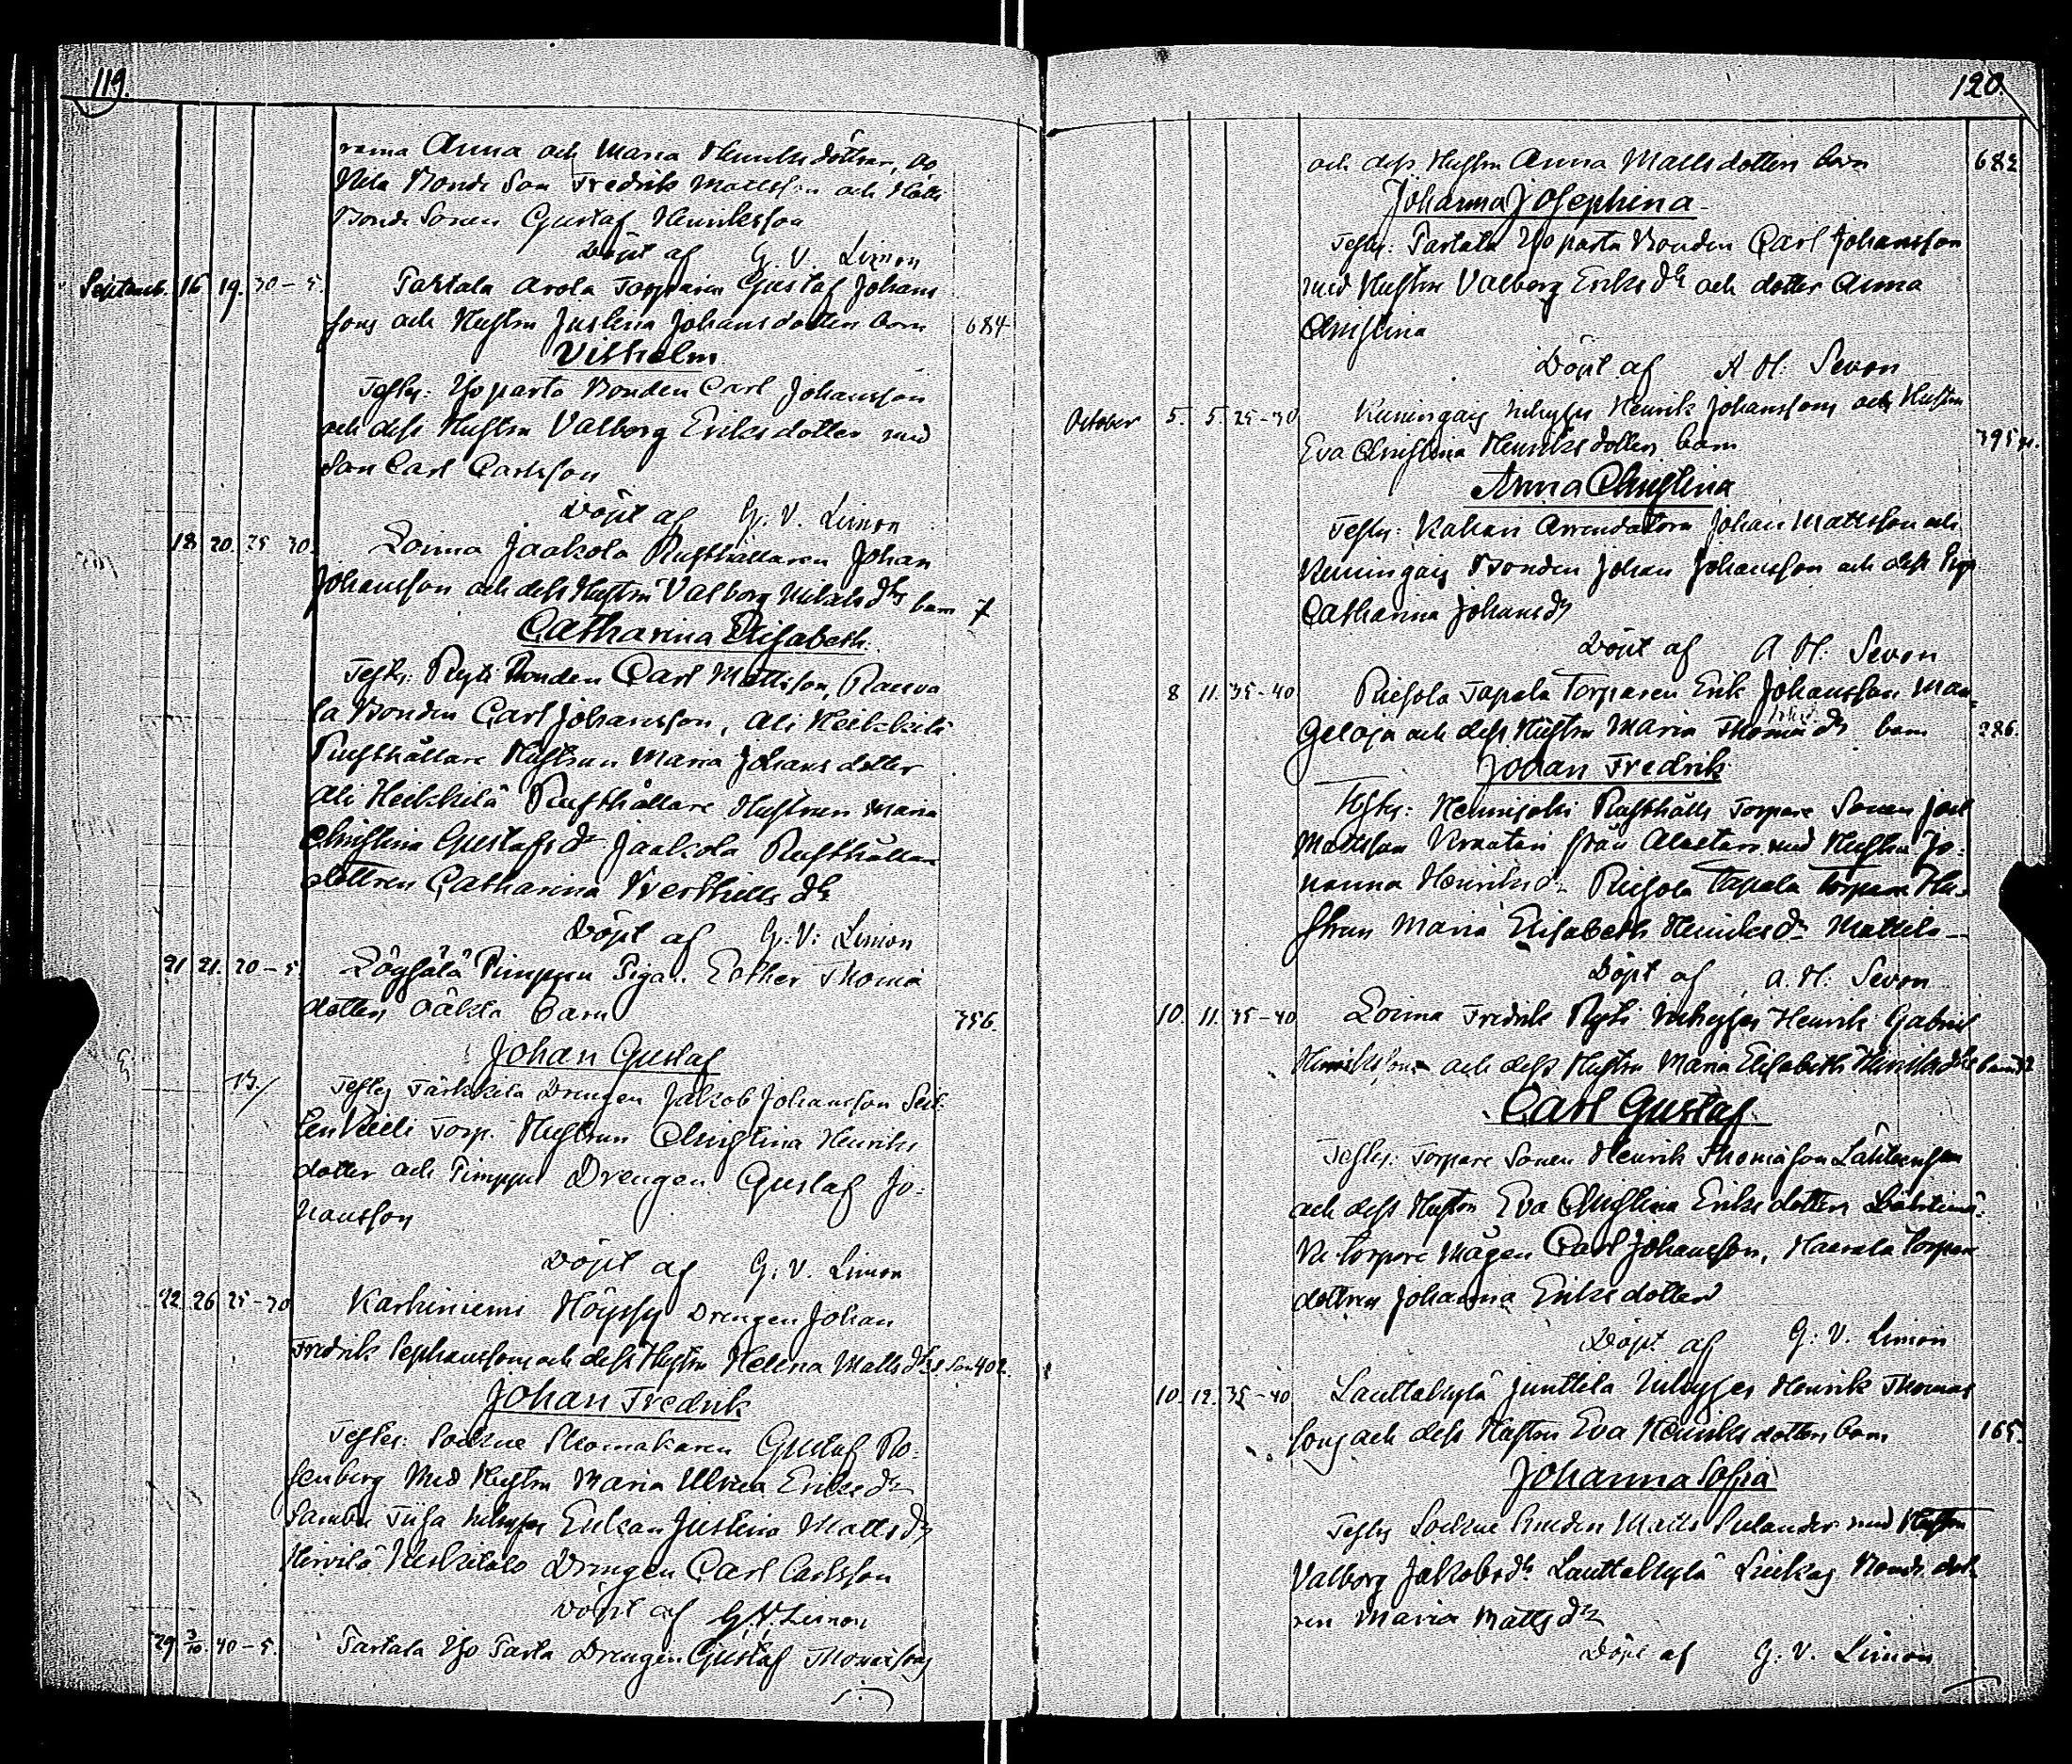 119.
rarna Anna och Maria Henriksdöttrar,
Bonde Son Fredrik Mattsson och
Bonde Sonen Gustaf Henriksson
Döpt af G. V. Limon
Septemb. 16 19. 30-5. Tartala Arola Torparen Gustaf Johans
sons och Hustru Justina Johansdotters barn 684
Vilhelm
Testes: Yso parta Bonden Carl Johansson
och dess Hustru Valborg Eriksdotter med
Son Carl Carlsson
Döpt af G. V. Limon
18 20. 25 30. Loima Jaakola Rusthållaren Johan
Johansson och dess Hustru Valborg Mikels dtrs barn 7
Catharina Elisabeth.
Testes: Ryti Bonden Carl Mattsson,
la Bonden Carl Johansson, Ali Heikkilä
Rusthållare Hustrun Maria Johansdotter
Ali Heikkilä Rusthållare Hustrun Maria
Christina Gustafs dr Jaakola Rusthållare
dottren Catharina
Döpt af G. V. Limon
21 21. 20-5 Pimppu Piga Esther Thomæ
dotters oäkta Barn 356.
Johan Gustaf
Testes Drengen Jakob Johansson
Torp. Hustrun Christina Henriks
dotter och Pimppu Drengen Gustaf Jo-
hansson
Döpt af G. V. Limon
22 26 25-30 Karhiniemi Höyssy Drengen Johan
Fredrik Stephanssons och dess Hustru Helena Matts dtrs Son 402.
Johan Fredrik
Testes: Sockne Skomakaren Gustaf Ro-
senberg Med Hustru Maria Ulrica Eriks dr
Sambu Enkan Justina Matts dr
Hirvilä Drengen Carl Carlsson
Döpt af G. V. Limon
29 3/10 40-5. Tartala Yso Parta Drengen Gustaf Thomæsons
120.
och dess Hustru Anna Mattsdotters barn 682
Johanna Josephina
Testes: Tartala Yso parta Bonden Carl Johansson
med Hustru Valborg Eriks dr och dotter Anna
Christina
Döpt af A H: Sevon
October 5. 5. 25-30 Kuningais Inhyses Henrik Johanssons och Hustru
Eva Christina Henriksdotters barn 395
Anna Christina
Testes: Arrendatorn Johan Mattsson och
Kuningais Bonden Johan Johansson och dess Piga
Catharina Johans dr
Döpt af A H: Sevon
8 11. 35-40 Tapala Torparen Erik Johansson Man-
geloja och dess Hustru Maria Thomæ dr barn 286.
Johan Fredrik
Testes: Rusthålls Torpare Sonen
Mattsson från Alastaro med Hustru Jo-
hanna Henriks dr Tapala Torpare Hu-
strun Maria Elisabeth Henriks dr Mattila
Döpt af A. H: Sevon
10. 11. 35-40 Loima Fredrik Ryti Inhyses Henrik Gabriel
Henrikssons och dess Hustru Maria Elisabeth Henriks dtrs barn
Carl Gustaf
Testes: Torpare Sonen Henrik Thomæson
och dess Hustru Eva Christina Eriksdotter
Torpare Mågen Carl Johansson, Torpare
dottren Johanna Eriksdotter
Döpt af G. V. Limon
10. 12. 35-40 Lauttakylä Junttila Inhyses Henrik Thomæ
sons och dess Hustru Eva Henriksdotters barn 165.
Johanna Sofia
Testes Sockne Smeden Matts Selander med Hustru
Valborg Jakobs dr Lauttakylä Bonde dot-
ren Maria Matts dr
Döpt af G. V. Limon